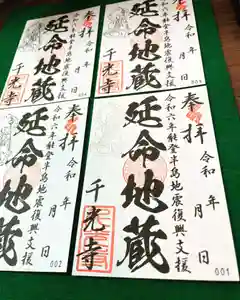 奉拝
令和 年 月 日
令和六年能登半島地震復興支援
延命地蔵
千光寺
奉拝
令和 年 月 日
令和六年能登半島地震復興支援
延命地蔵
千光寺
奉拝
令和 年 月 日
令和六年能登半島地震復興支援
延命地蔵
002
奉拝
令和 年 月 日
令和六年能登半島地震復興支援
延命地蔵
千光寺
001